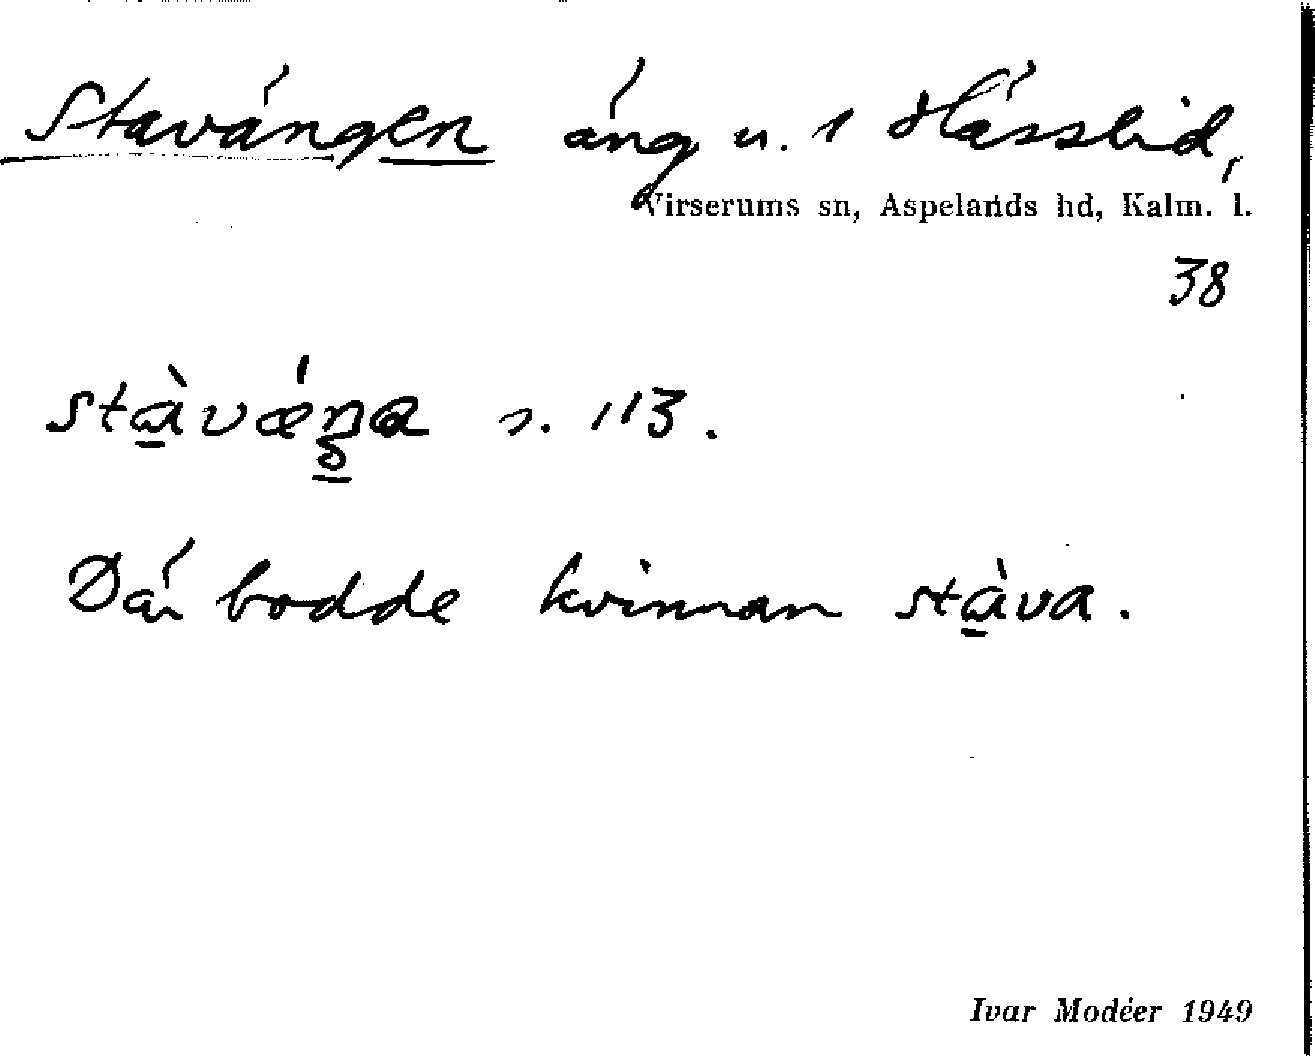 Stavängen äng u. 1 Hässlid,
Virserums sn, Aspelands hd, Kalm. l.
38
stàvǽŋa s. 113.
Där bodde kvinnan stàva.
Ivar Modéer 1949